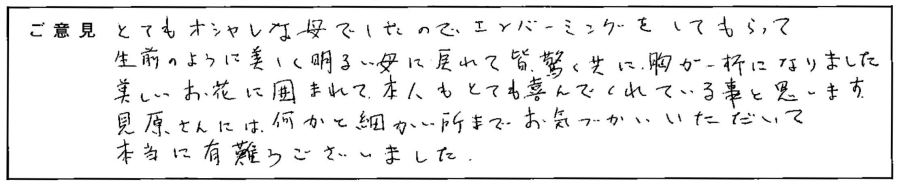 ご意見 とてもオシャレな母でしたので、エンバーミングをしてもらって
生前のように美しく明るい母に戻れて皆、驚くと共に、胸が一杯になりました
美しいお花に囲まれて、本人もとても喜んでくれている事と思います。
見原さんには、何かと細かい所までお気づかいいただいて
本当に有難うございました。